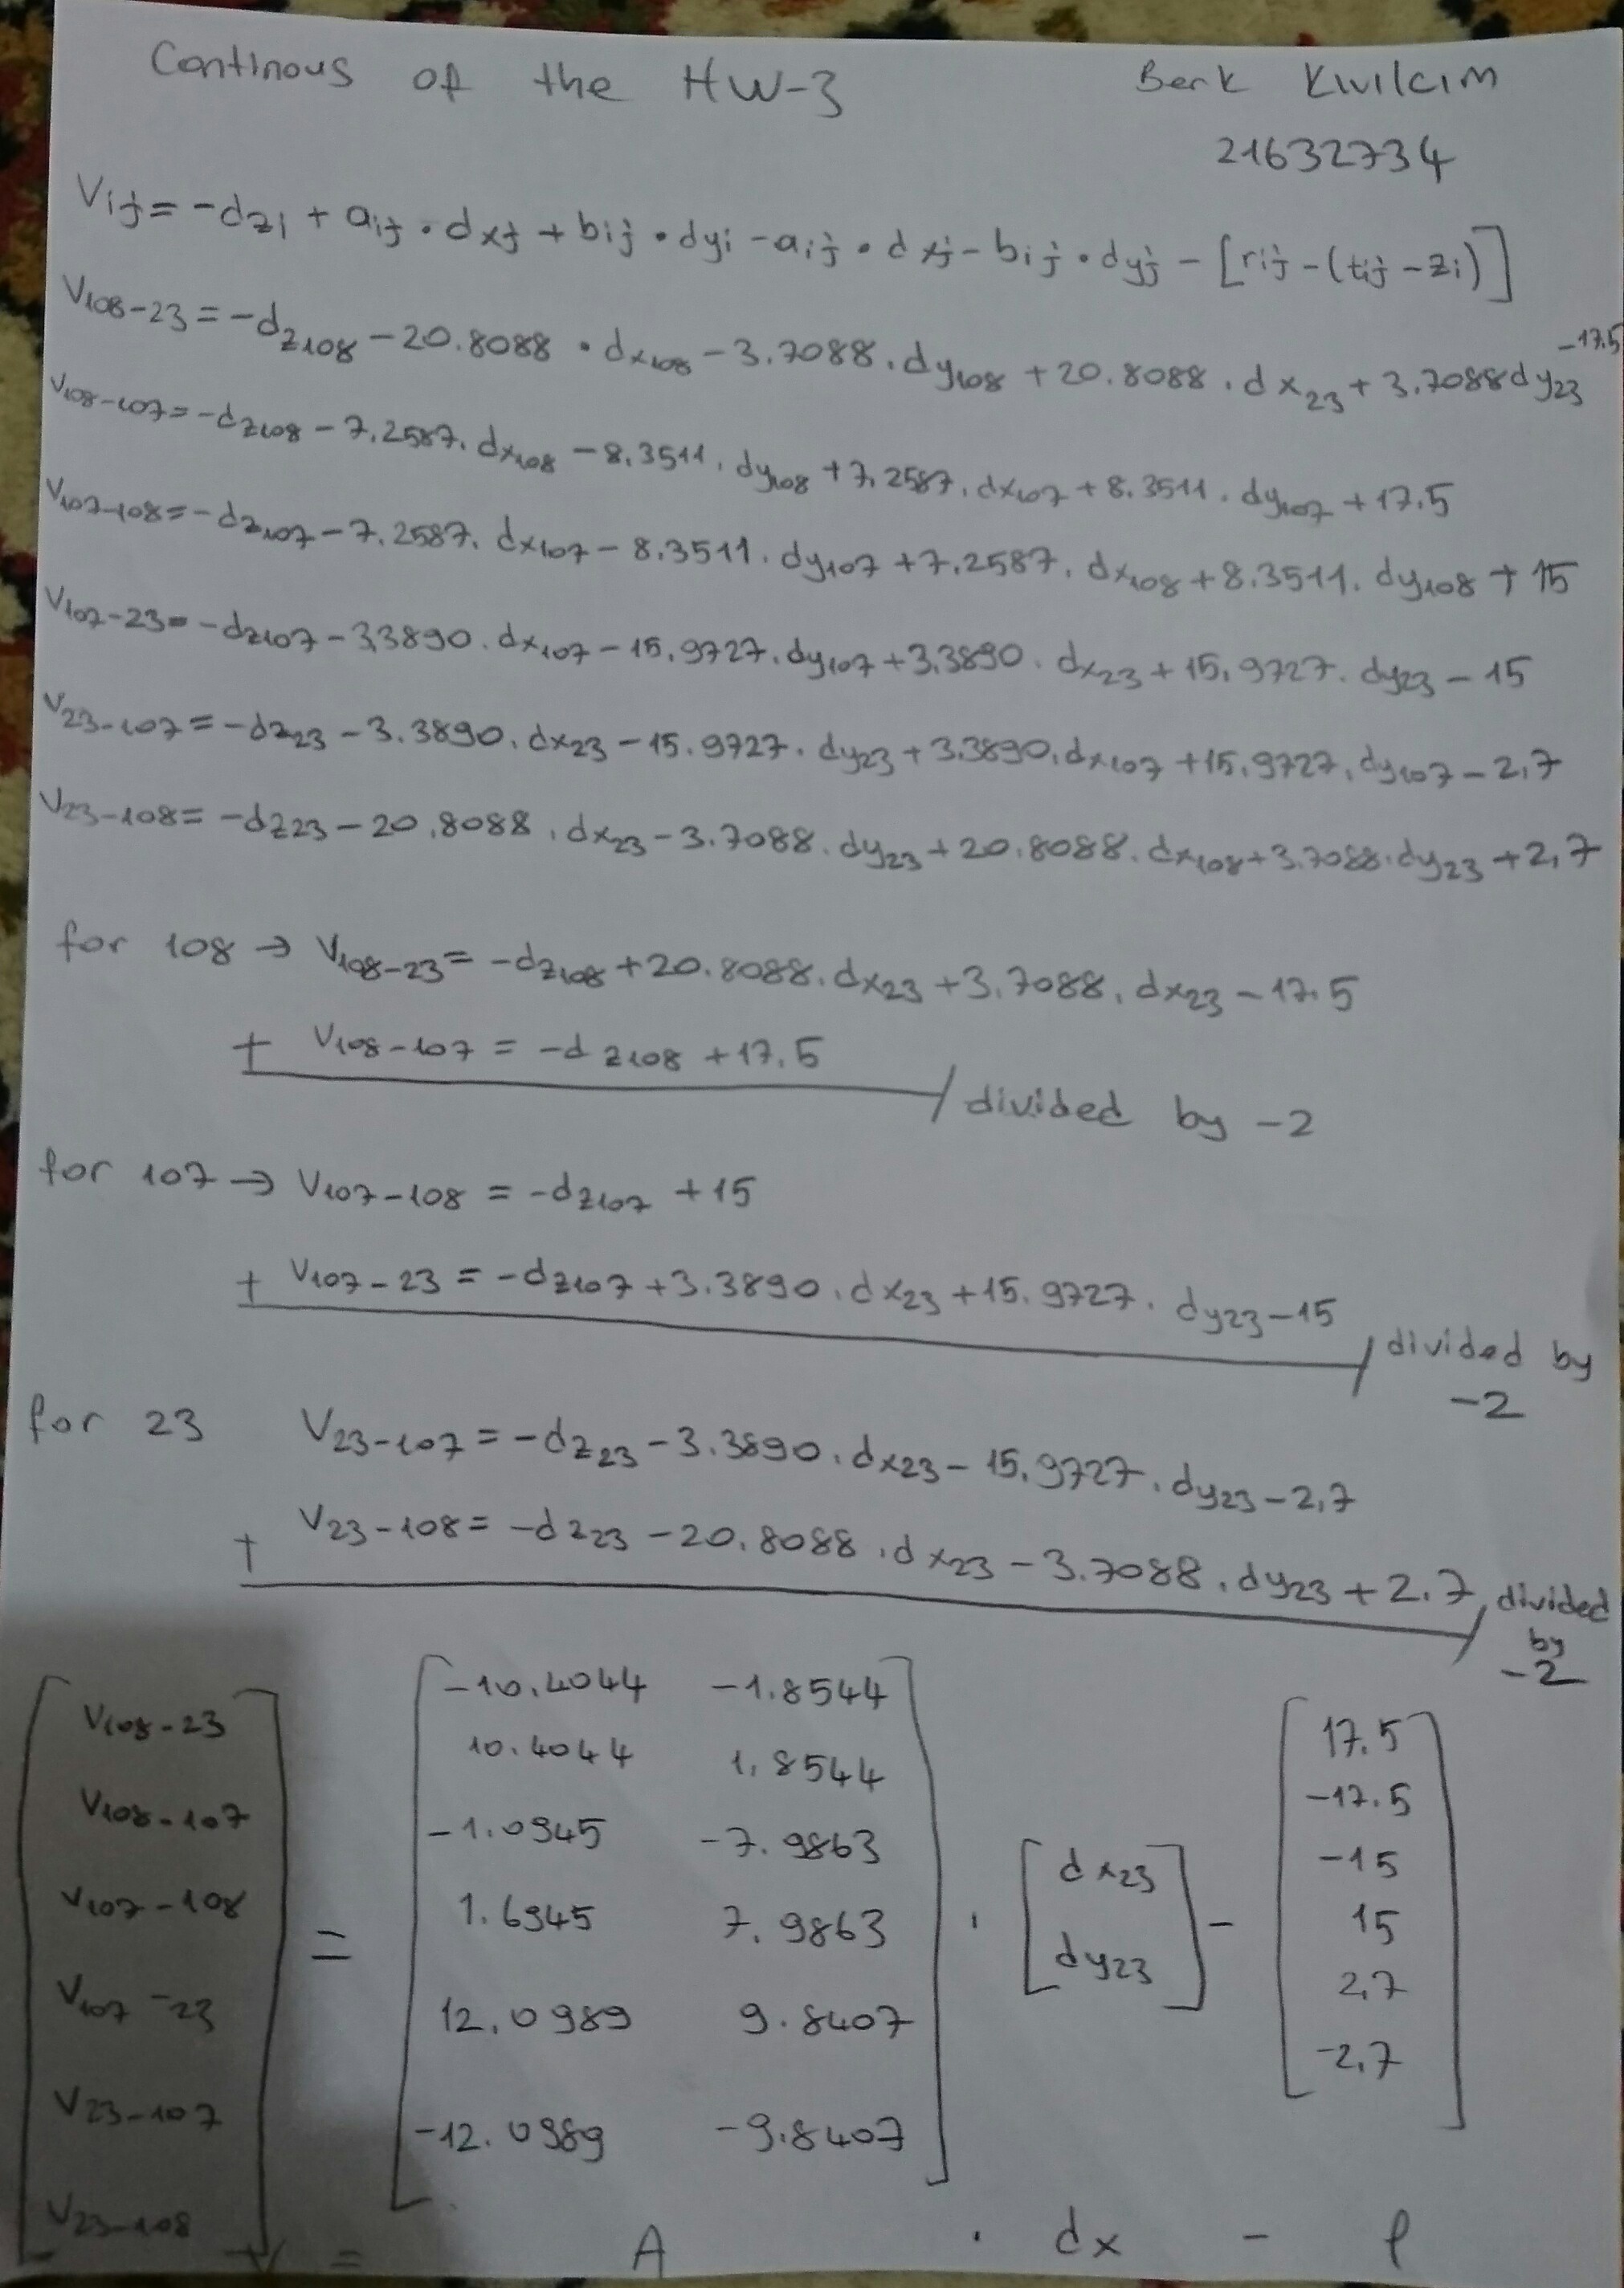 Continous of the HW-3 Berk Kıvılcım
21632734
Vij = -dzi + aij . dxj + bij . dyi - aij . dxj - bij . dyj - [rij - (tij - zi)]
V108-23 = -dz108 - 20.8088 . dx108 - 3.7088 . dy108 + 20.8088 . dx23 + 3.7088 dy23 -17.5
V108-107 = -dz108 - 7.2587 . dx108 - 8.3511 . dy108 + 7.2587 . dx107 + 8.3511 . dy107 + 17.5
V107-108 = -dz107 - 7.2587 . dx107 - 8.3511 . dy107 + 7.2587 . dx108 + 8.3511 . dy108 + 15
V107-23 = -dz107 - 3,3890 . dx107 - 15.9727 . dy107 + 3.3890 . dx23 + 15.9727 . dy23 - 15
V23-107 = -dz23 - 3.3890 . dx23 - 15.9727 . dy23 + 3.3890 . dx107 + 15.9727 . dy107 - 2,7
V23-108 = -dz23 - 20.8088 . dx23 - 3.7088 . dy23 + 20.8088 . dx108 + 3.7088 . dy23 + 2,7
for 108 → V108-23 = -dz108 + 20.8088 . dx23 + 3.7088 . dx23 - 17.5
+ V108-107 = -dz108 + 17.5
/ divided by -2
for 107 → V107-108 = -dz107 + 15
+ V107-23 = -dz107 + 3.3890 . dx23 + 15.9727 . dy23 - 15
/ divided by
-2
for 23 V23-107 = -dz23 - 3.3890 . dx23 - 15.9727 . dy23 - 2,7
+ V23-108 = -dz23 - 20.8088 . dx23 - 3.7088 . dy23 + 2.7
/ divided
by
-2
V108-23 -10.4044 -1.8544 17.5
V108-107 10.4044 1,8544 -17.5
V107-108 -1.0945 -7.9863 dx23 -15
= 1.6945 7.9863 . - 15
V107-23 dy23
12.0989 9.8407 2,7
V23-107 -12.0989 -9.8407 -2,7
V23-108
V = A . dx - l